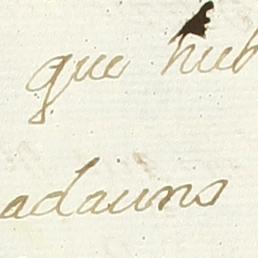 que hub
adauns